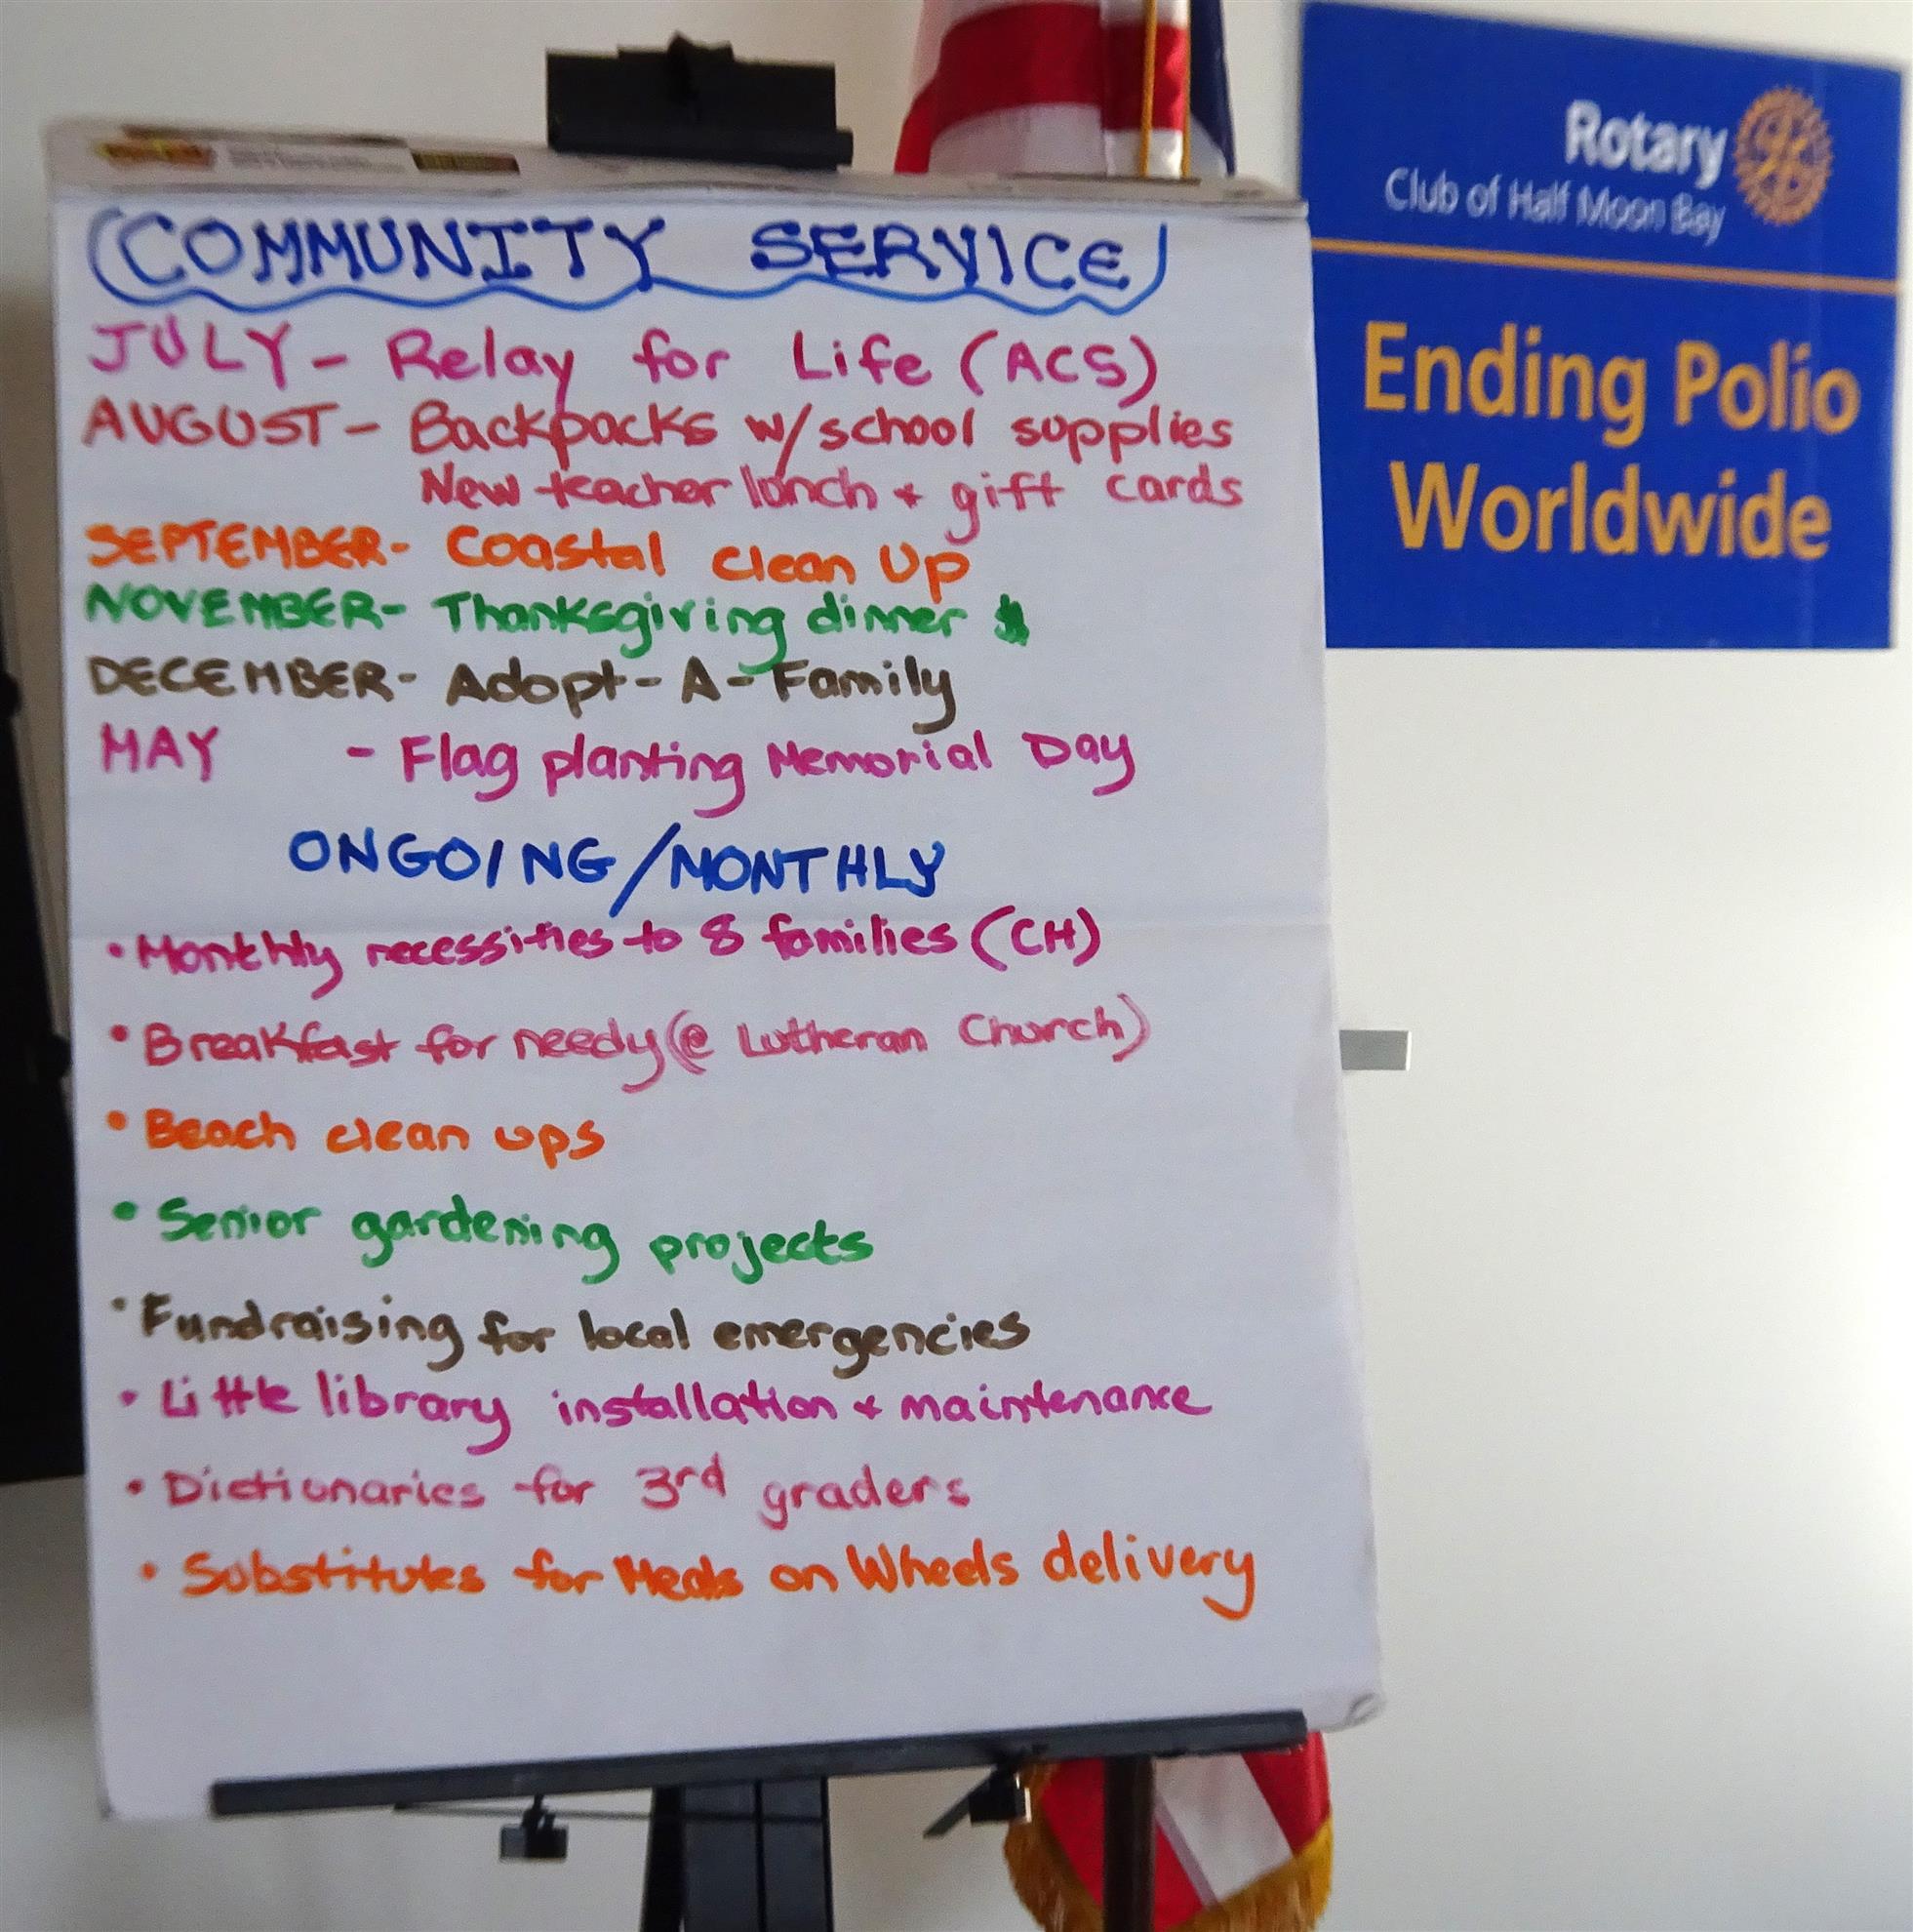 COMMUNITY SERVICE
JULY - Relay for Life (ACS)
AUGUST - Backpacks w/school supplies
New teacher lunch + gift cards
SEPTEMBER - Coastal clean Up
NOVEMBER - Thanksgiving dinner
DECEMBER - Adopt-A-Family
MAY - Flag planting Memorial Day
ONGOING/MONTHLY
• Monthly necessities to 8 families (CH)
• Breakfast for needy (@ Lutheran Church)
• Beach clean ups
• Senior gardening projects
• Fundraising for local emergencies
• Little library installation + maintenance
• Dictionaries for 3rd graders
• Substitutes for Meals on Wheels delivery
Rotary
Club of Half Moon Bay
Ending Polio
Worldwide